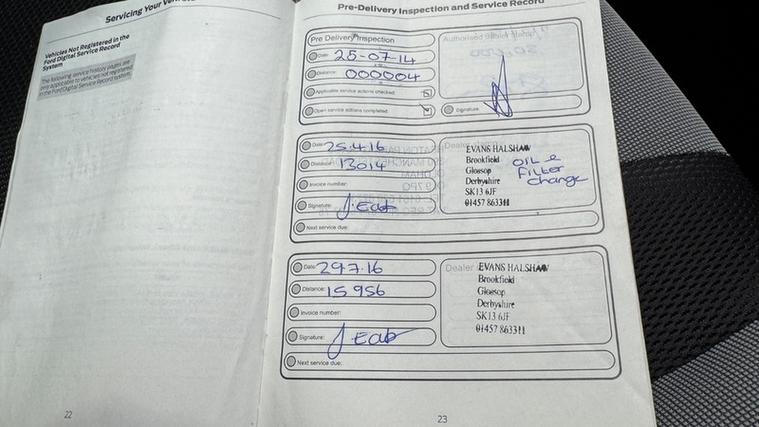 Servicing Your
Vehicles Not Registered in the
Ford Digital Service Record
System
The following service history pages are
only applicable to vehicles not registered
in the Ford Digital Service Record system.
22
Pre-Delivery Inspection and Service Record
Pre Delivery Inspection
Date: 25-07-14
Distance: 000004
Applicable service actions checked:
Open service actions completed:
Signature:
Date: 25.4.16
Distance: 13014
Invoice number:
Signature: J. Eab
Next service due:
Dealer
EVANS HALSHAW
Brookfield
Glossop
Derbyshire
SK13 6JF
01457 863311
OIL &
FILTER
Change
Date: 29.7.16
Distance: 15956
Invoice number:
Signature: J. Eab
Next service due:
Dealer EVANS HALSHAW
Brookfield
Glossop
Derbyshire
SK13 6JF
01457 863311
23